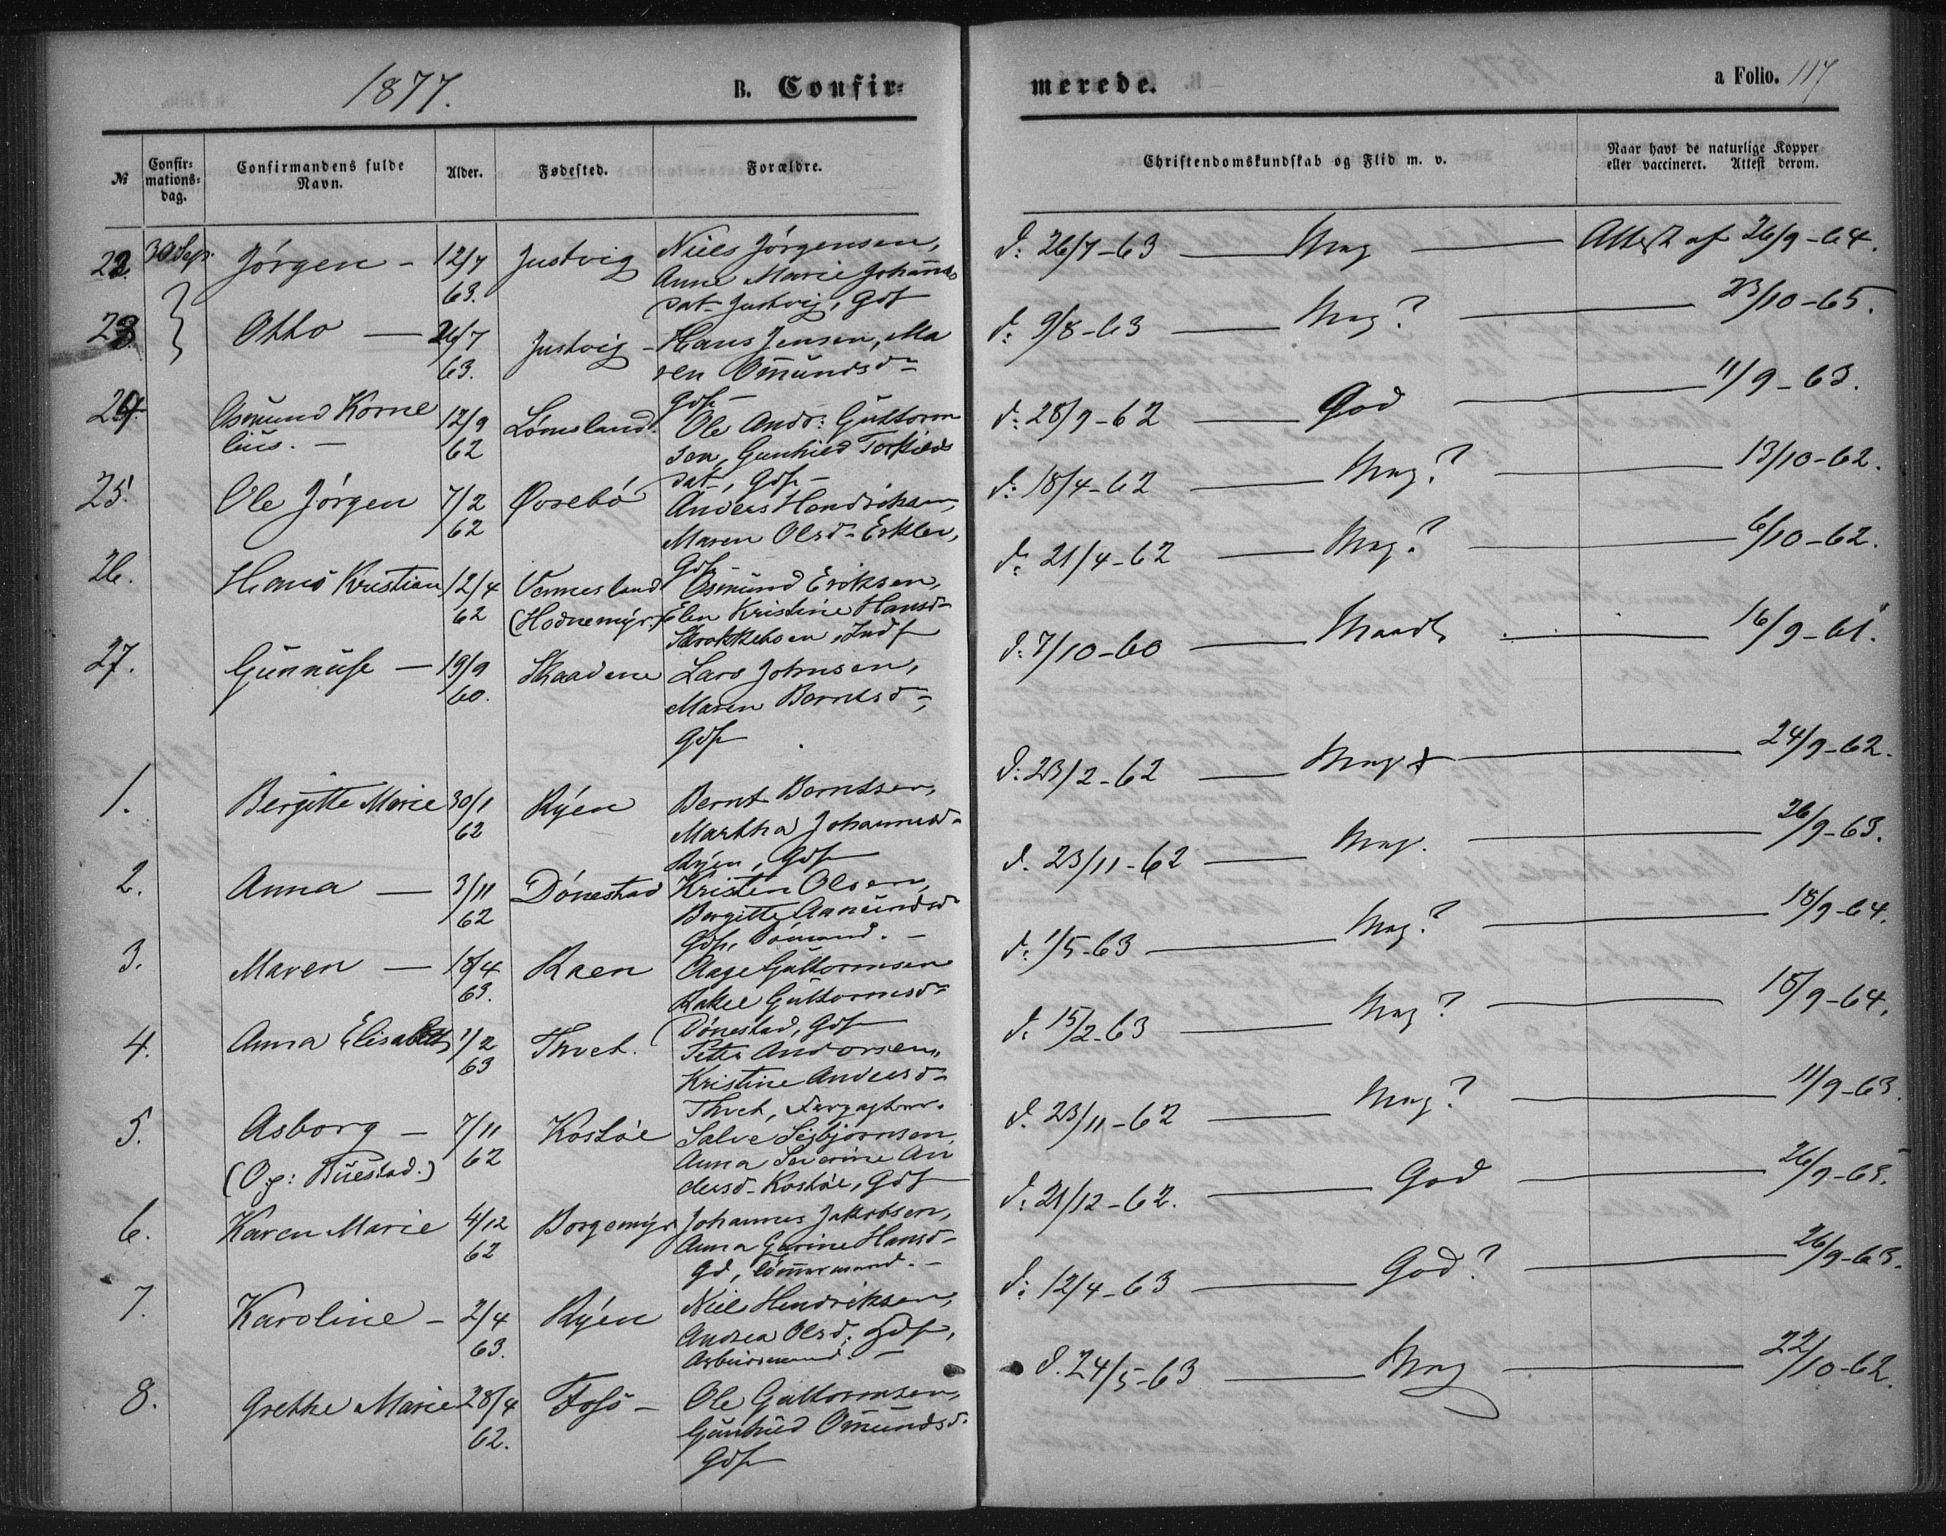 1877.
B. Confir=
merede.
a Folio. 117
№
Confir=
mations=
dag.
Confirmandens fulde
Navn.
Alder.
Fødested.
Forældre.
Christendomskundskab og Flid m. v.
Naar havt de naturlige Kopper
eller vaccineret. Attest derom.
22. 30 Sept Jörgen — 12/7 63. Justvig
Niels Jörgensen,
Anne Marie
Justvig, Gdf
d: 26/7-63 — Mag — Attest af 26/9-64.
23. Otto — 26/7 63. Justvig
Hans Jensen, Ma
ren Omundsd-
Gdf-
d: 9/8-63 — Mag? — 23/10-65.
24. Asmund Korne
lius. — 12/9 62 Lömsland.
Ole Andr: Guttorm
sen, Gunhild Torkilds
dat, Gdf-
d: 28/9-62 — God — 11/9-63.
25. Ole Jörgen 7/2 62 Øvsebö
Anders Hendriksen,
Maren Olsd- Erklev,
Gdf-
d: 18/4-62 — Mag? — 13/10-62.
26. Hans Kristian 12/4 62 Vennesland
(Hodnemyr)
Osmund Eriksen,
Elen Kristine Hansd-
Indf
d: 21/4-62 — Mag? — 6/10-62.
27. Gunnuf — 19/9 60. Skaadene
Lars Johnsen,
Maren Berntsd-,
Gdf
d: 7/10-60 — Maadl — 16/9-61.
1. Bergitte Marie 30/1 62 Ryen
Bernt Berntsen,
Martha Johannesd-
Ryen, Gdf
d: 23/2-62 — Mag — 24/9-62.
2. Anna — 3/11 62 Dönestad
Kristen Olsen,
Bergitte Aamundsd-
Gdf,
d. 23/11-62 — Mag. — 26/9-63.
3. Maren — 18/4 63. Kaen
Aage Guttormsen
Rakel Guttormsd-
Dönestad, Gdf
d: 1/5-63 — Mag? — 18/9-64.
4. Anna Elisabeth 1/2 63 Thvet.
Petter Andersen,
Kristine Andersd-
Thvet,
d: 15/2-63 — Mag? — 18/9-64.
5. Asborg — 7/11 62 Kostöe
(Op: Ruestad.)
Salve Sigbjörnsen,
Anna Severine An
dersd- Kostöe, Gdf
d. 23/11-62 — Mag? — 11/9-63.
6. Karen Marie 4/12 62 Borgemyr
Johannes Jakobsen,
Anna Gurine Hansd-
Gd, tömmermand. —
d: 21/12-62. — God — 26/9-65.
7. Karoline — 2/4 63. Ryen
Niels Hendriksen,
Andrea Olsd. Gdf,
Arbeidsmand. —
d: 12/4-63 — God? — 26/9-63.
8. Grethe Marie 28/4 62. Foss —
Ole Guttormsen,
Gunhild Omundsd.
Gdf
d. 24/5-63 — Mag — 22/10-62.